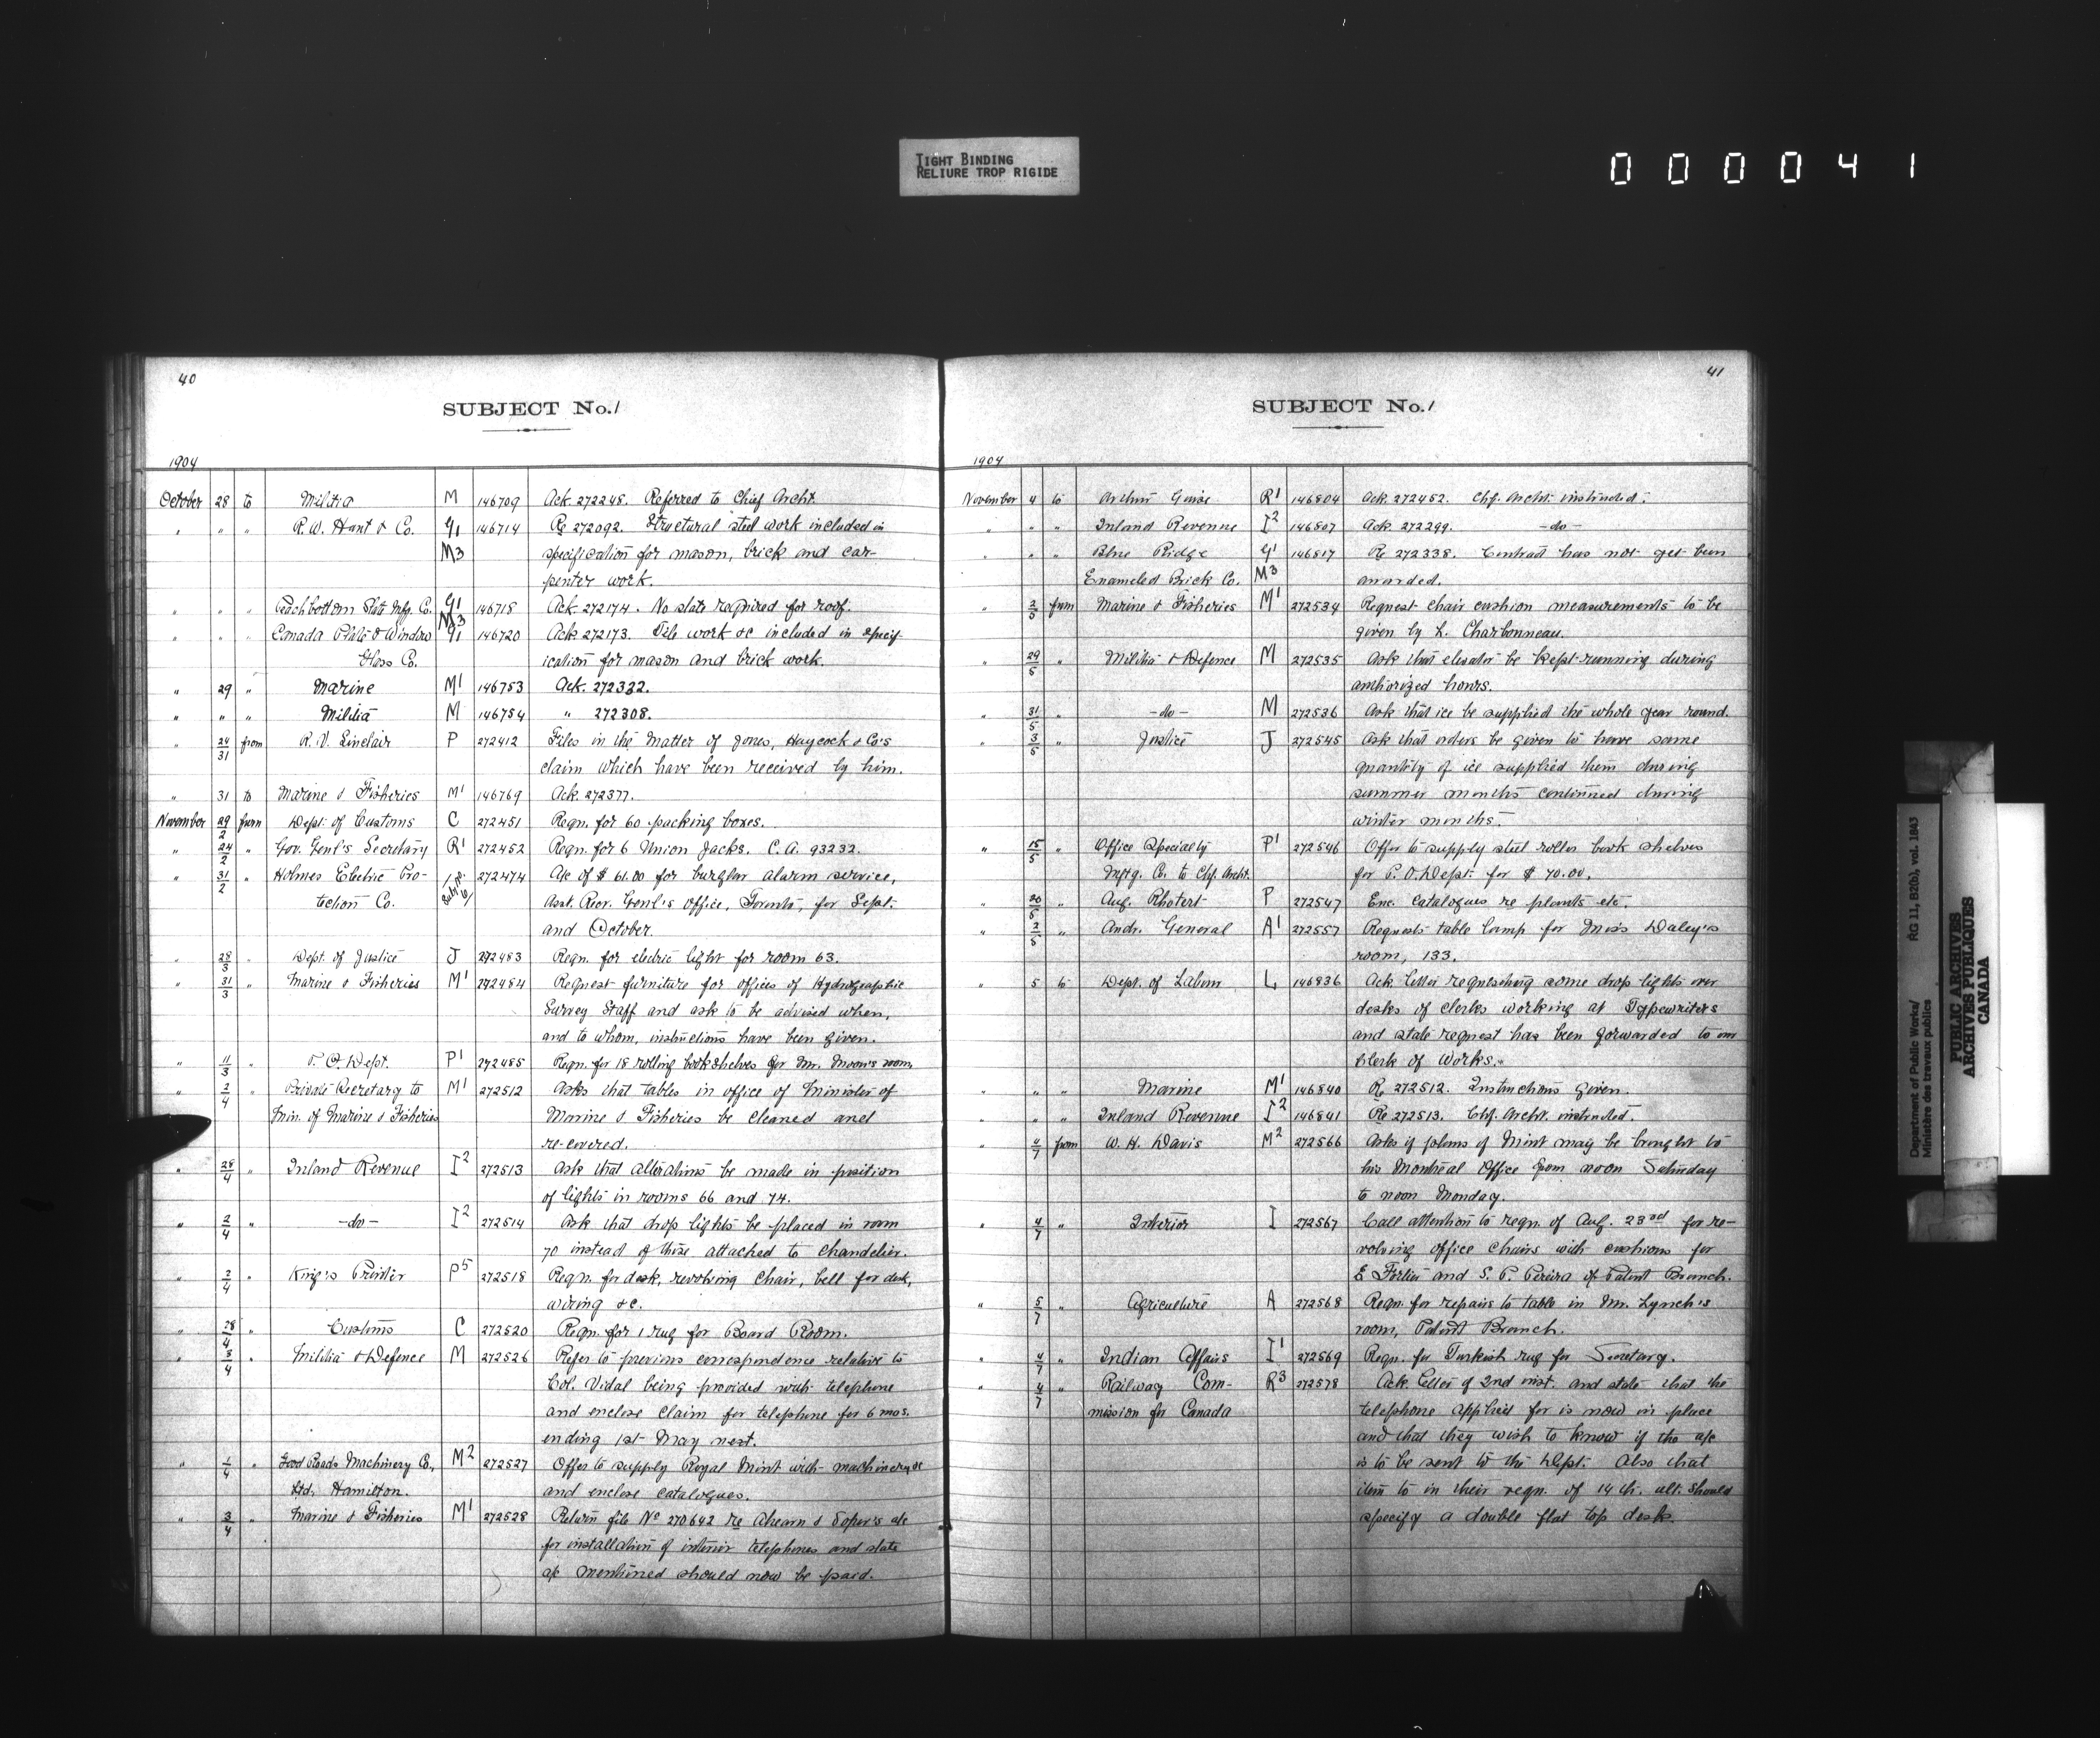 TIGHT BINDING
RELIURE TROP RIGIDE
000041
40
SUBJECT No. 1
1904
October 28 to Militia M 146709 Ack. 272248. Referred to Chief Archt.
" " " R. W. Hunt & Co. G1 146714 Re 272092. Structural steel work included in
M3 specification for mason, brick and car-
penter work.
" " " Peachbottom Slate Mfg. Co. G1 M3 146718 Ack. 272174. No slate required for roof.
" " " Canada Plate & Window G1 146720 Ack. 272173. Tile work &c included in specif-
Glass Co. ication for mason and brick work.
" 29 " Marine M1 146753 Ack. 272332.
" " " Militia M 146754 " 272308.
" 24/31 from R. V. Sinclair P 272412 Files in the matter of Jones, Haycock & Co's
claim which have been received by him.
" 31 to Marine & Fisheries M1 146769 Ack. 272377.
November 29/2 from Dept. of Customs C 272451 Reqn. for 60 packing boxes.
" 24/2 " Gov. Genl's Secretary R1 272452 Reqn. for 6 Union Jacks. C. A. 93232.
" 31/2 " Holmes Electric Pro- 272474 A/c of $61.00 for burglar alarm service,
tection Co. Asst. Recr. Genl's Office, Toronto, for Sept.
and October.
" 28/3 " Dept. of Justice J 272483 Reqn. for electric light for room 63.
" 31/3 " Marine & Fisheries M1 272484 Request furniture for offices of Hydrographic
Survey Staff and ask to be advised when,
and to whom, instructions have been given.
" 11/3 " P. O. Dept. P1 272485 Reqn. for 18 rolling book shelves for Mr. Moon's room.
" 2/4 " Private Secretary to M1 272512 Asks that tables in office of Minister of
Min. of Marine & Fisheries Marine & Fisheries be cleaned and
re-covered.
" 28/4 " Inland Revenue I2 272513 Ask that alterations be made in position
of lights in rooms 66 and 74.
" 2/4 " -do- I2 272514 Ask that drop lights be placed in room
70 instead of those attached to chandelier.
" 2/4 " King's Printer P5 272518 Reqn. for desk, revolving chair, bell for desk,
wiring &c.
" 28/4 " Customs C 272520 Reqn. for 1 rug for Board Room.
" 3/4 " Militia & Defence M 272526 Refer to previous correspondence relative to
Col. Vidal being provided with telephone
and enclose claim for telephone for 6 mos.
ending 1st May next.
" 1/4 " Good Roads Machinery Co., M2 272527 Offer to supply Royal Mint with machinery &c
Ltd, Hamilton. and enclose catalogues.
" 3/4 " Marine & Fisheries M1 272528 Return file No 270642 re Ahearn & Soper's a/c
for installation of interior telephones and state
a/c mentioned should now be paid.
41
SUBJECT No. 1
1904
November 4 to Arthur Guise R1 146804 Ack. 272452. Chf. Archt. instructed.
" " " Inland Revenue I2 146807 Ack. 272299. -do-
" " " Blue Ridge G1 146817 Re 272338. Contract has not yet been
Enameled Brick Co. M3 awarded.
" 2/5 from Marine & Fisheries M1 272534 Request chair cushion measurements to be
given by L. Charbonneau.
" 29/5 " Militia & Defence M 272535 Ask that elevator be kept running during
authorized hours.
" 31/5 " -do- M 272536 Ask that ice be supplied the whole year round.
" 3/5 " Justice J 272545 Ask that orders be given to have same
quantity of ice supplied them during
summer months continued during
winter months.
" 15/5 " Office Specialty P1 272546 Offer to supply steel roller book shelves
Mfrg. Co. to Chf. Archt. for P. O. Dept. for $70.00.
" 20/5 " Aug. Rhotert P 272547 Enc. catalogues re plants etc.
" 2/5 " Audr. General A1 272557 Requests table lamp for Miss Daley's
room, 133.
" 5 to Dept. of Labour L 146836 Ack letter requesting some drop lights over
desks of clerks working at Typewriters
and state request has been forwarded to our
Clerk of Works.
" " " Marine M1 146840 Re 272512. Instructions given.
" " " Inland Revenue I2 146841 Re 272513. Chf. Archt. instructed.
" 4/7 from W. H. Davis M2 272566 Asks if plans of Mint may be brought to
his Montreal Office from noon Saturday
to noon Monday.
" 4/7 " Interior I 272567 Call attention to reqn. of Aug. 23rd for re-
volving office chairs with cushions for
E Fortier and S. P. Pereira of Patent Branch.
" 5/7 " Agriculture A 272568 Reqn. for repairs to table in Mr. Lynch's
room, Patent Branch.
" 4/7 " Indian Affairs I1 272569 Reqn. for Turkish rug for Secretary.
" 4/7 " Railway Com- R3 272578 Ack. letter of 2nd inst. and state that the
mission for Canada telephone applied for is now in place
and that they wish to know if the a/c
is to be sent to this Dept. Also that
item 10 in their reqn. of 14th. ult. should
specify a double flat top desk.
Department of Public Works/
Ministère des travaux publics
RG 11, B2(b), vol. 1843
PUBLIC ARCHIVES
ARCHIVES PUBLIQUES
CANADA